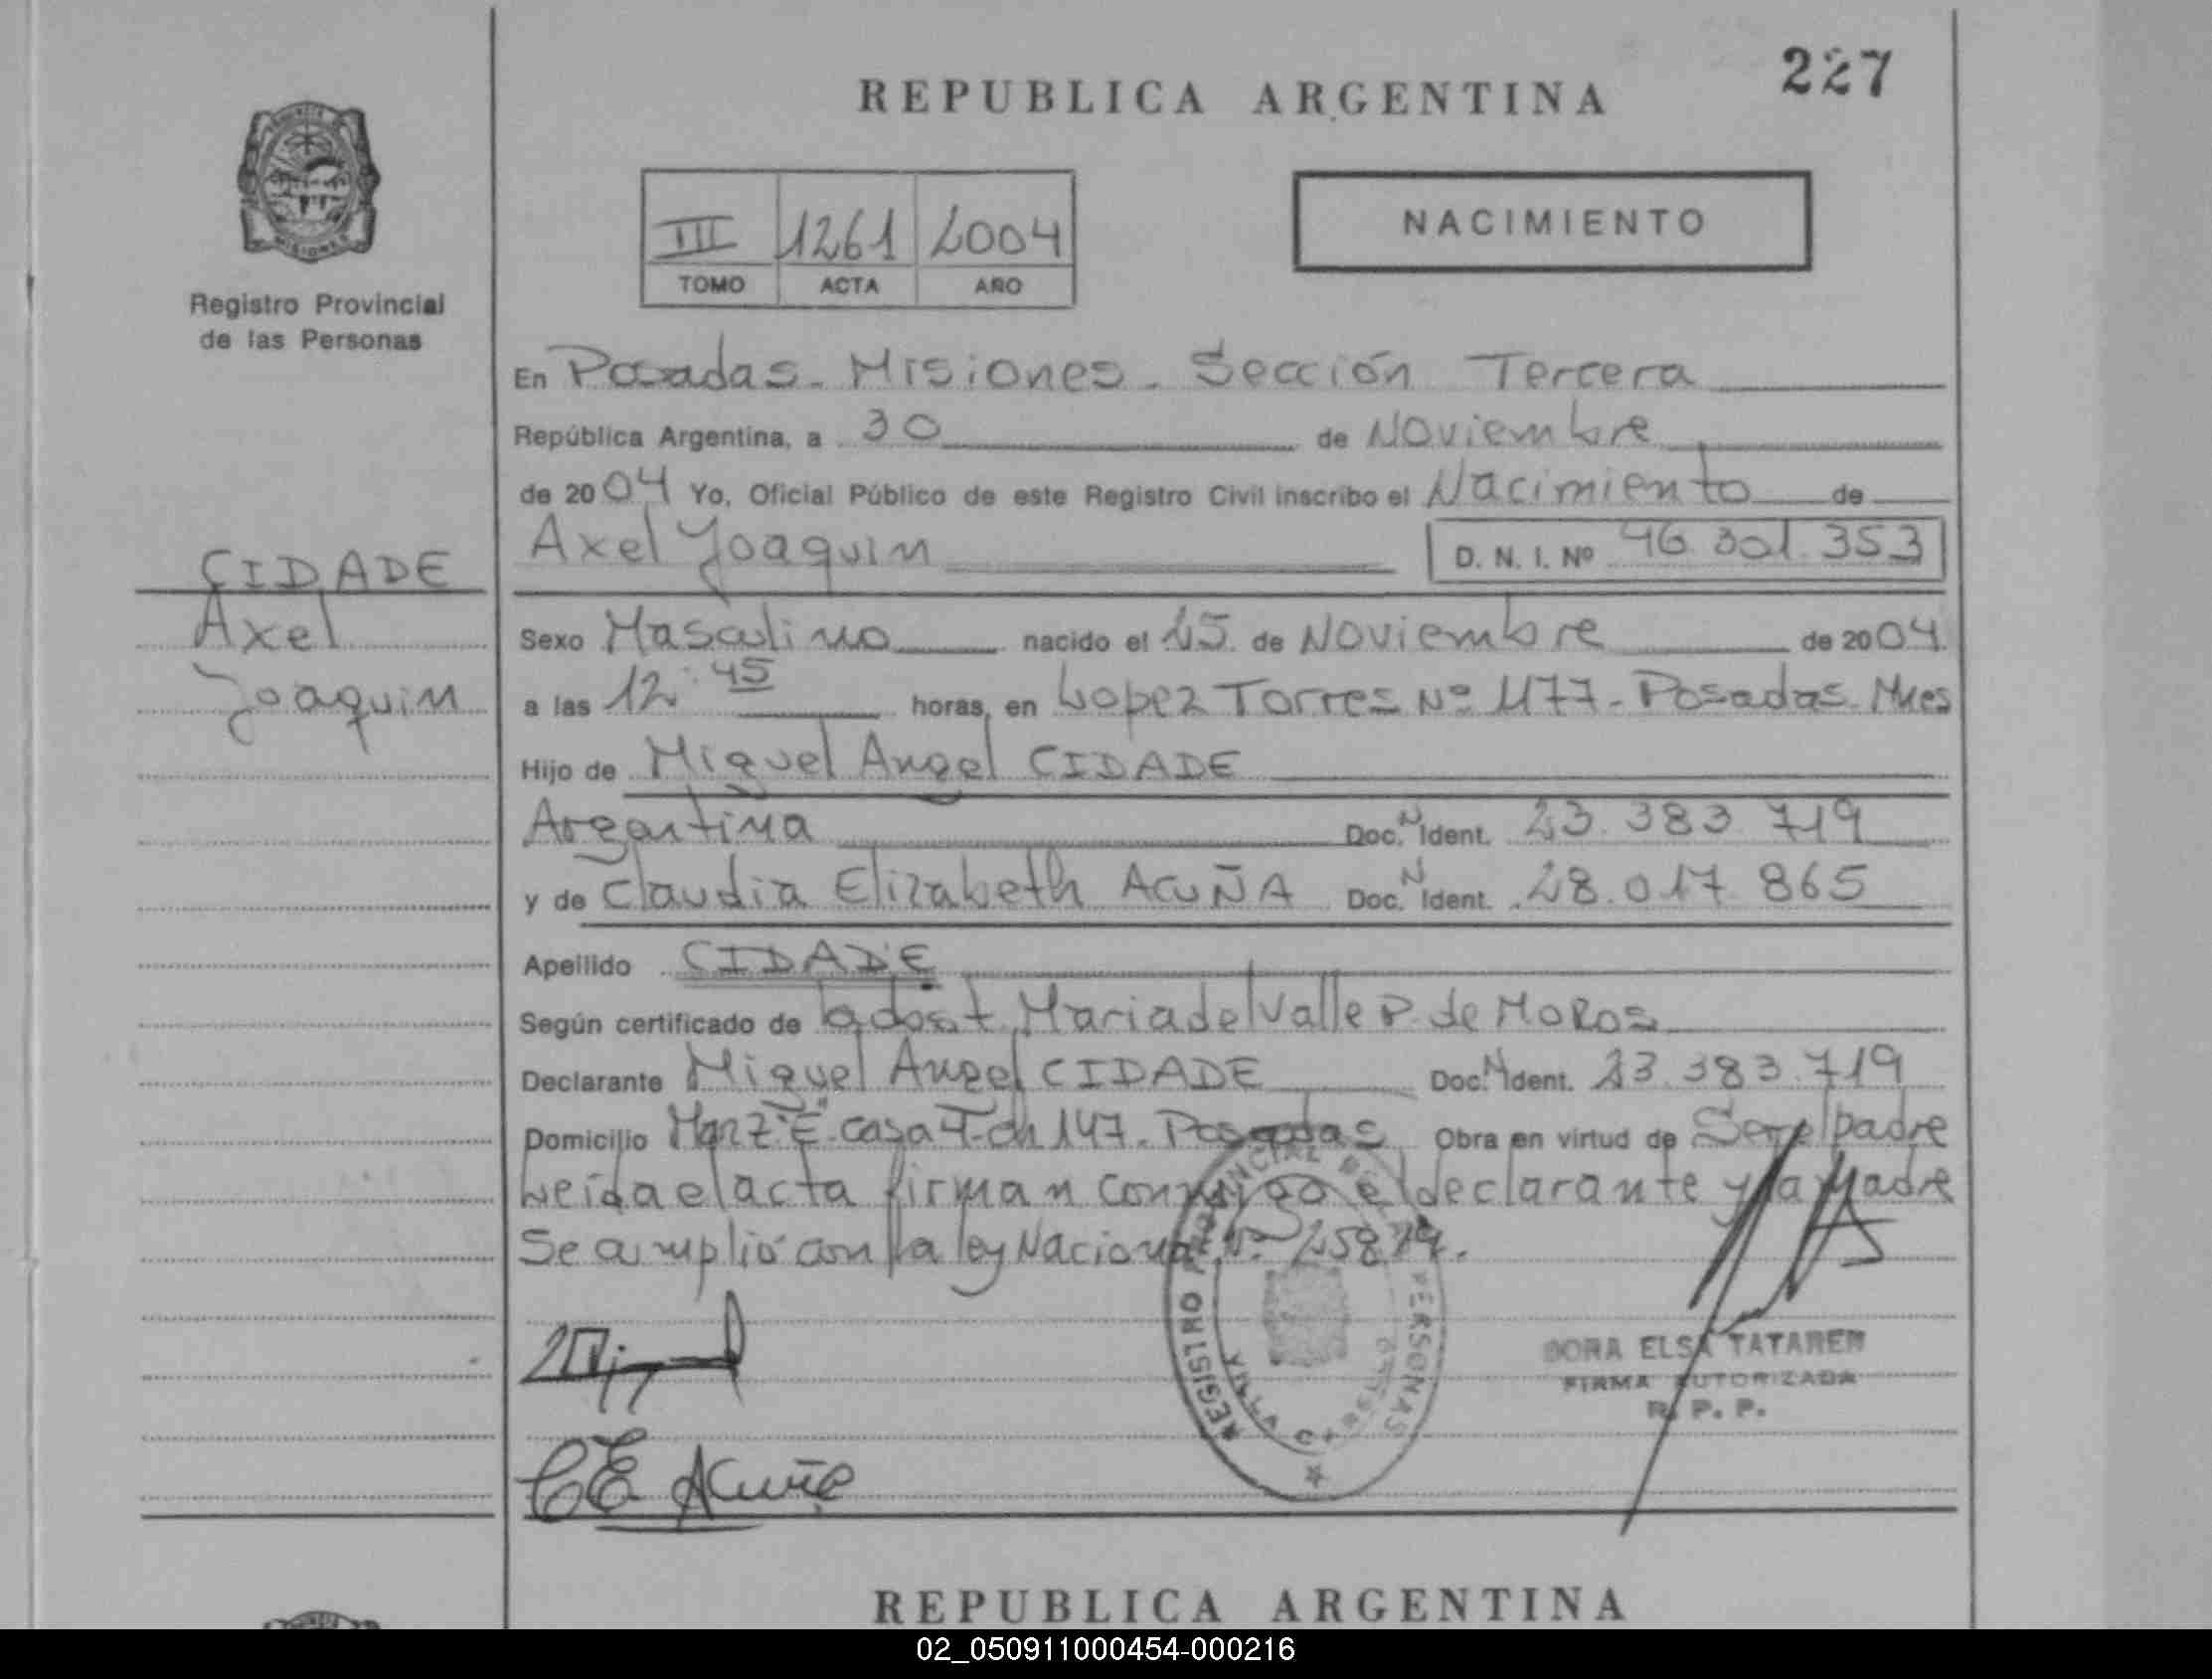 227
REPUBLICA ARGENTINA
III 1261 2004
TOMO ACTA AÑO
NACIMIENTO
Registro Provincial
de las Personas
En Posadas - Misiones - Sección Tercera
República Argentina, a 30 de Noviembre
de 2004 Yo, Oficial Público de este Registro Civil inscribo el Nacimiento de
Axel Joaquin D. N. I. Nº 46.301.353
CIDADE
Axel
Joaquin
Sexo Masculino nacido el 25 de Noviembre de 2004.
a las 12:45 horas, en Lopez Torres Nº 1177 - Posadas Mnes
Hijo de Miguel Angel CIDADE
Argentina Doc. N Ident. 23.383.719
y de Claudia Elizabeth ACUÑA Doc. N Ident. 28.017.865
Apellido CIDADE
Según certificado de la obst. Maria del Valle P. de MOROS
Declarante Miguel Angel CIDADE Doc. N Ident. 23.383.719
Domicilio Manz "E" Casa 7-ch 147 - Posadas Obra en virtud de Ser el padre
Leída el acta firman conmigo el declarante y la Madre
Se cumplió con la ley Nacional Nº
REGISTRO PROVINCIAL DE LAS PERSONAS
DORA ELSA TATAREN
FIRMA AUTORIZADA
R. P. P.
CE Acuña
REPUBLICA ARGENTINA
02_050911000454-000216